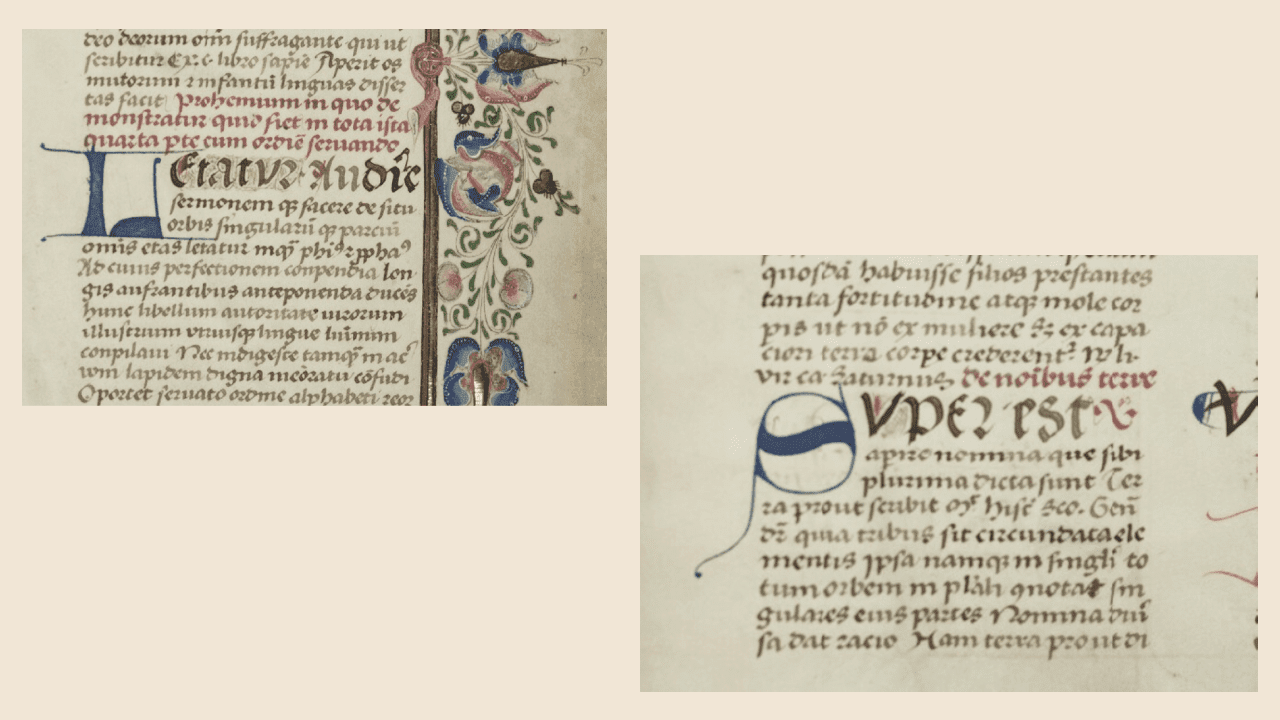 deo deorum oım̄ suffragante qui ut
scribitur Ex: c libro sapīe Aperit os
mutorum ⁊ infantiū linguas disser
tas facit Prohemium in quo de
monstratur quid fiet in tota ista
quarta pte cum ordiē seruando
LEtatur Audīe
sermonem qꝫ facere de situ
orbis singulariū qꝫ parciū
omīs etas letatur inqꝫ̄ phīs
Ad cuius perfectionem conpendia lon
gis anfrantibus anteponenda ducēs
hunc libellum autoritate uirorum
illustrium utriusqꝫ lingue
conpilaui Nec indigeste tamqꝫ̄ in
lapidem digna
Oportet seruato ordine alphabeti reor
quosdā habuisse filios prestantes
tanta fortitudine atqꝫ mole cor
pis ut nō ex muliere Sꝫ ex capa
ciori terra corpe crederent᷒ ut li-
Saturnus de noībus terre
SUPER est
apire nomina que sibi
plurima dicta sunt Ter
ra prout scribit mꝛ̄ hisē sco. Genī
dꝛ̄ quia tribus sit circundata ele
mentis ipsa namqꝫ in singlī to
tum orbem in plāli quotat sin
gulares eius partes Nomina diuī
sa dat racio Nam terra prout di